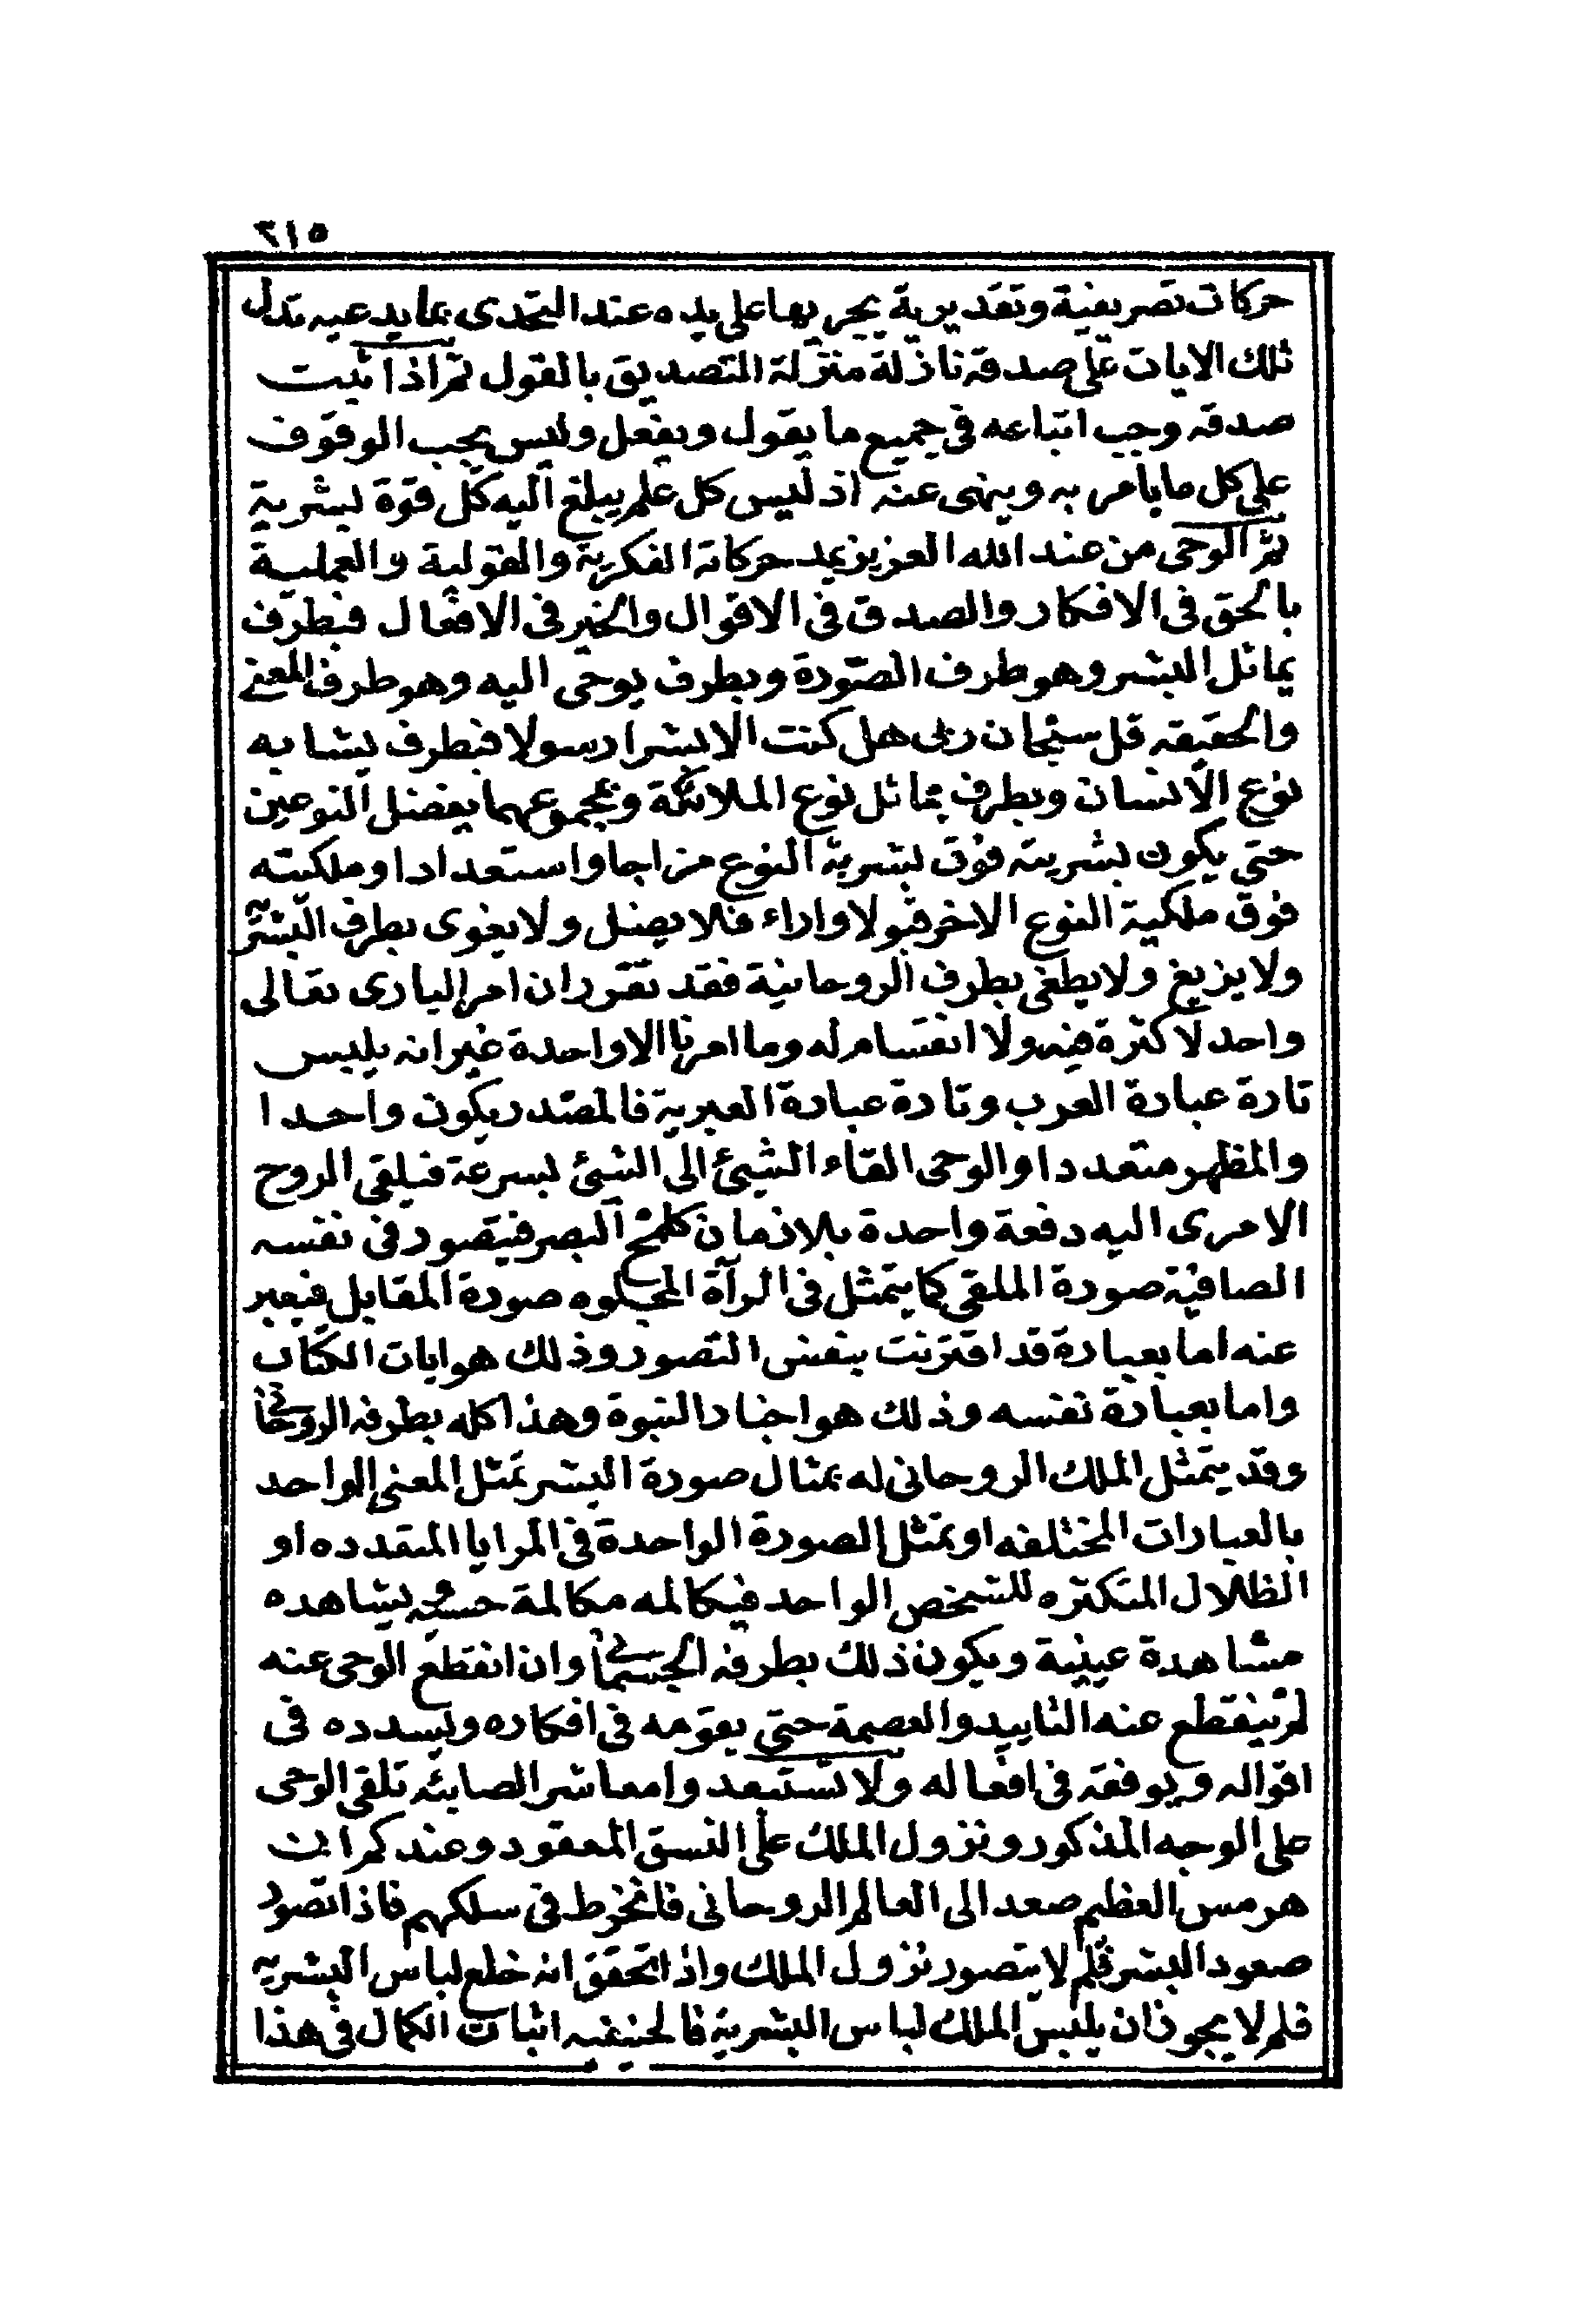 ٢١٥
حركات تصريفية وتقديرية يجريها على يده عند التحدى بما يدعيه تدل
تلك الايات على صدقه نازلة منزلة التصديق بالقول ثم اذا ثبت
صدقه وجب اتباعه فى جميع ما يقول ويفعل وليس يجب الوقوف
على كل ما يامر به وينهى عنه اذ ليس كل علم يبلغ اليه كل قوة بشرية
ثم الوحى من عند الله العزيز يمد حركاته الفكرية والقولية والعملية
بالحق فى الافكار والصدق فى الاقوال والخير فى الافعال فبطرف
يماثل البشر وهو طرف الصورة وبطرف يوحى اليه وهو طرف المعنى
والحقيقه قل سبحان ربى هل كنت الا بشرا رسولا فبطرف يشابه
نوع الانسان وبطرف يماثل نوع الملائكة وبمجموعهما يفضل النوعين
حتى يكون بشريته فوق بشرية النوع مزاجا واستعدادا وملكيته
فوق ملكية النوع الاخر قبولا واداء فلا يضل ولا يغوى بطرف البشرية
ولا يزيغ ولا يطغى بطرف الروحانية فقد تقرر ان امر البارى تعالى
واحد لا كثرة فيه ولا انقسام له وما امرنا الا واحدة غير انه يلبس
تارة عبارة العرب وتارة عبارة العبرية فالمصدر يكون واحدا
والمظهر متعددا والوحى القاء الشئ الى الشئ بسرعة فيلقى الروح
الامرى اليه دفعة واحدة بلا زمان كلمح البصر فيتصور فى نفسه
الصافية صورة الملقى كما يتمثل فى المرآة المجلوه صورة المقابل فيعبر
عنه اما بعبارة قد اقترنت بنفس التصور وذلك هو ايات الكتاب
واما بعبارة نفسه وذلك هو اخبار النبوة وهذا كله بطرفه الروحانى
وقد يتمثل الملك الروحانى له بمثال صورة البشر تمثل المعنى الواحد
بالعبارات المختلفه او تمثل الصورة الواحدة فى المرايا المتعدده او
الظلال المتكثره للشخص الواحد فيكالمه مكالمة حسيه يشاهده
مشاهدة عينية ويكون ذلك بطرفه الجسمانى وان انقطع الوحى عنه
لم ينقطع عنه التاييد والعصمة حتى يقومه فى افكاره ويسدده فى
اقواله ويوفقه فى افعاله ولا تستبعدوا معاشر الصابئه تلقى الوحى
على الوجه المذكور ونزول الملك على النسق المعقود وعندكم ان
هرمس العظيم صعد الى العالم الروحانى فانخرط فى سلكهم فاذا تصور
صعود البشر فلم لا يتصور نزول الملك واذا تحقق انه خلع لباس البشريه
فلم لا يجوز ان يلبس الملك لباس البشرية فالحنيفيه اثبات الكمال فى هذا